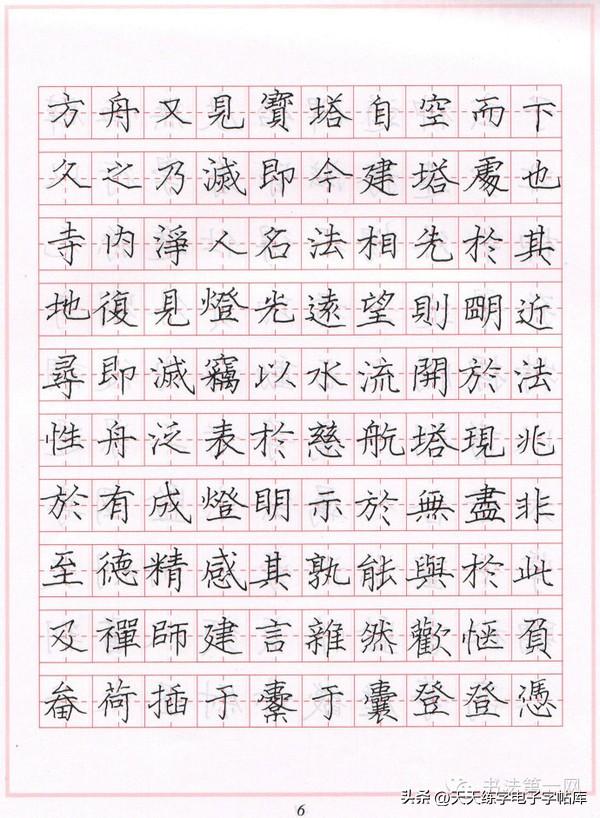 方舟又見寶塔自空而下
久之乃滅即今建塔處也
寺內淨人名法相先於其
地復見燈光遠望則明近
尋即滅竊以水流開於法
性舟泛表於慈航塔現兆
於有成燈明示於無盡非
至德精感其孰能與於此
及禪師建言雜然歡愜負
畚荷插于橐于囊登登憑
书法第一网
头条 @天天练字电子字帖库
6